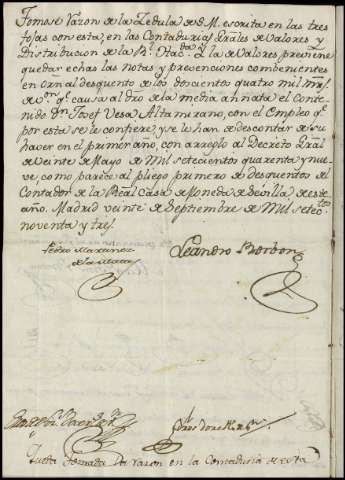 Tomose Razon de la Zedula de S. M. escrita en las tres
fojas con esta, en las Contadurias Grãles de Valores y
Distribucion de la Rl. Hacda. y la de Valores previene
quedar echas las notas y prevenciones combenientes
en ôrn al desquento de los doscientos quatro mil mrs.
de von. qe. causa al dro de la media annata el Conte-
nido Dn. Josef Vesa Altamirano, con el Empleo qe.
por esta se le confiere, y se le han de descontar de su
haver en el primer año, con arreglo al Decreto Grãl
de veinte de Mayo de Mil setecientos quarenta y nue-
ve, como parece al pliego primero de descuentos del
Contador de la Real Casa de Moneda de Sevilla de este
año. Madrid veinte de Septiembre de Mil setectos.
noventa y tres.
Pedro Martinez
de la Mata
Leandro Borbon
Queda tomada la razon en la Contaduria